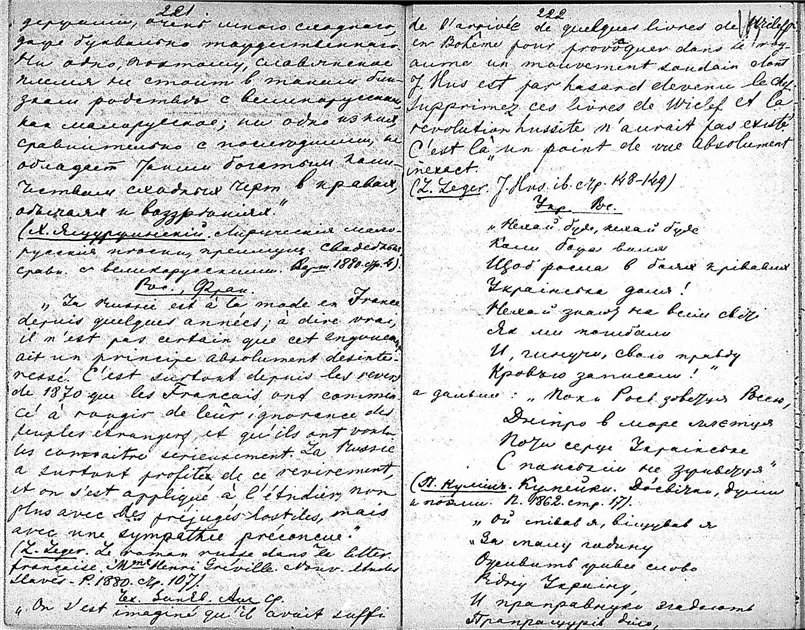 221
держаніи, очень много сходнаго,
даже буквально тождественнаго.
Ни одно, поэтому, славянское
племя не стоитъ въ такомъ близкомъ
родствѣ с великорусскимъ,
как малорусское; ни одно из них,
сравнительно с последним, не
обладает таким богатым коли-
чеством сходныхъ черт в нравахъ,
обычаях и воззрѣніяхъ"
(Х. Ящуржинскій. Лирическія мало-
русскія пѣсни, преимущ. свадебныя,
сравн. с великорусскими. Варш. 1880. стр. 4).
Рос., Фран.
„La Russie est à la mode en France
depuis quelques années; à dire vrai,
il n'est pas certain que cet engouem-
ait un principe absolument désinté-
ressé. C'est surtout depuis les revers
de 1870 que les Français ont commen-
cé à rougir de leur ignorance des
peuples étrangers et qu'ils ont voulu
les connaître sérieusement. La Russie
a surtout profité de ce revirement,
et on s'est appliqué à l'étudier, non
plus avec des préjugés hostiles, mais
avec une sympathie préconçue."
(L. Leger. Le roman russe dans la littér.
française. Mme Henri Gréville. Nouv. études
slaves. P. 1880. стр. 107).
„On s'est imaginé qu'il avait suffi
222
de l'arrivée de quelques livres de Wiclef
en Bohême pour provoquer dans le roy-
aume un mouvement soudain dont
J. Hus est par hasard devenu le chef.
Supprimez ces livres de Wiclef et la
révolution hussite n'aurait pas existé
C'est là un point de vue absolument
inexact."
(L. Leger. J. Hus. ib. стр. 148-149)
Укр. Рос.
„Нехай буде, нехай буде
Кали боца воля
Щоб росла в болях крівавих
Українська доля!
Нехай знають на всім світі
Як ми погибали
И, гинучи, свою правду
Кровью записали!"
а дальше: „Поки Рось зоветця Росью,
Дніпро в море льетця
Поти серце Українське
С панським не зживетця"
(П. Куліш. Кумейки. Досвітки, думи
и поэми. П. 1862. стр. 17).
„Ой співав я, віщував я
„За малу годину
Оживить живе слово
Рідну Україну,
И праправнуки згадають
Прапращурів діло,